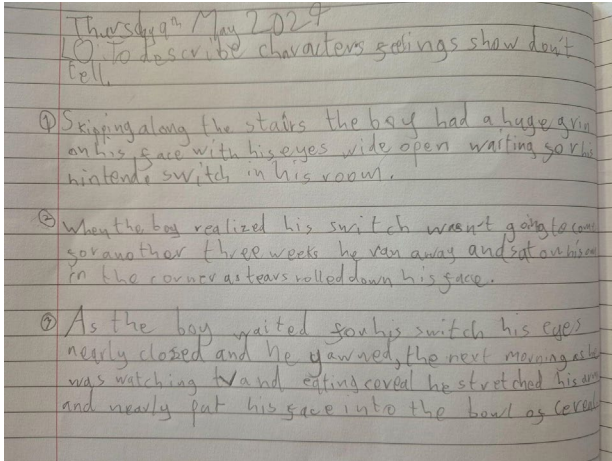 Thursday 9th May 2024
LO: To describe characters feelings show don't
tell.
① Skipping along the stairs the boy had a huge grin
on his face with his eyes wide open waiting for his
nintendo switch in his room.
② When the boy realized his switch wasn't going to come
for another three weeks he ran away and sat on his own
in the corner as tears rolled down his face.
③ As the boy waited for his switch his eyes
nearly closed and he yawned, the next morning as he
was watching tv and eating cereal he stretched his arm
and nearly put his face into the bowl of cereal